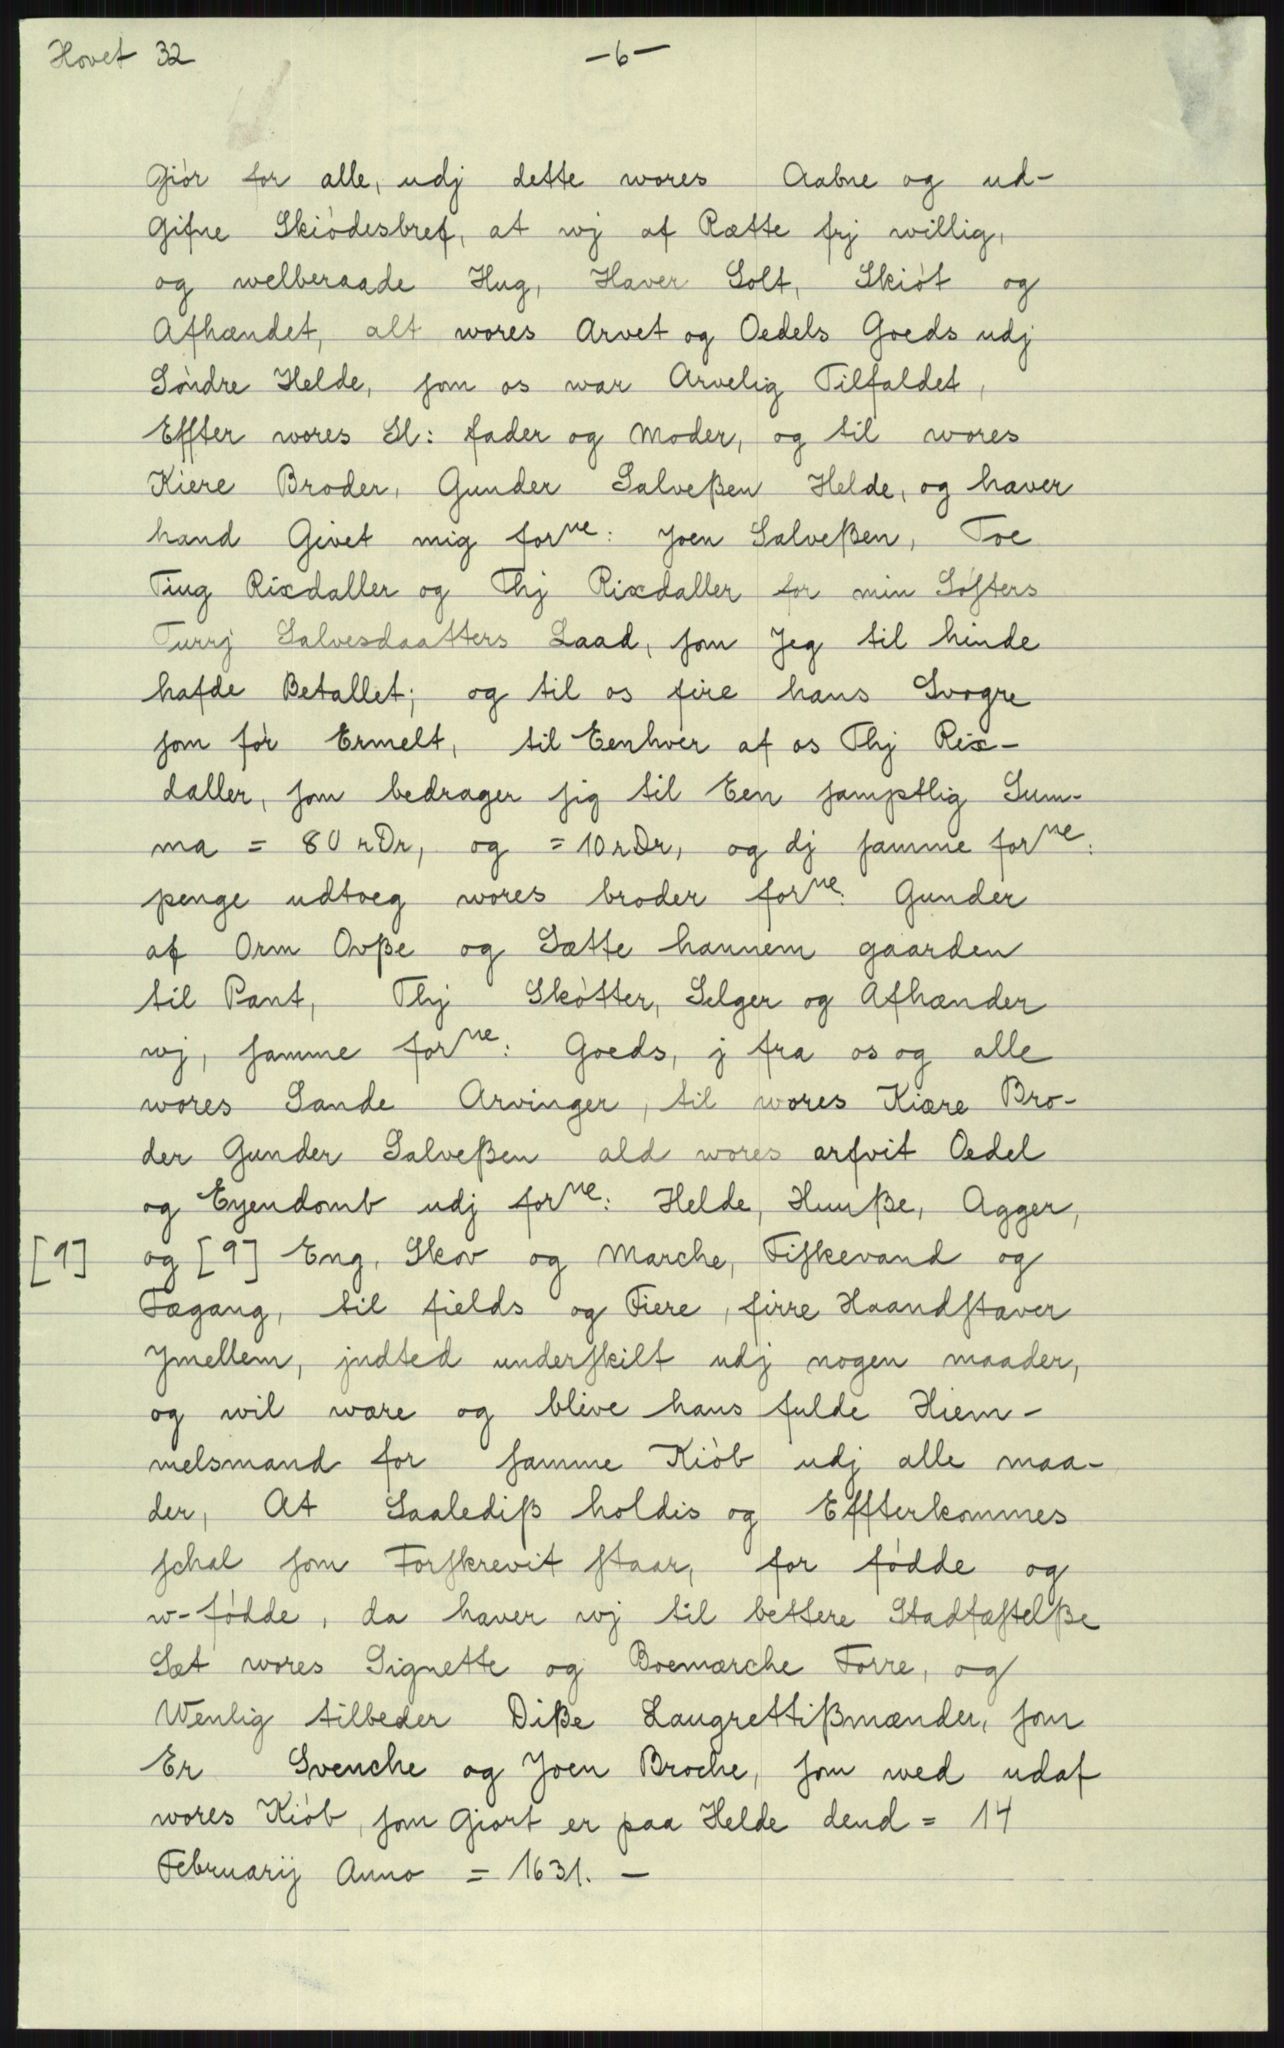 Hovet 32
-6-
Giör for alle, udj dette wores Aabne og ud-
Gifne Skiödesbref, at wj af Rætte frj willig,
og welberaade Hug, Haver Solt, Skiöt og
Afhændet, alt wores Arvet og Oedels Goeds udj
Söndre Helde, som os war Arvelig Tilfaldet,
Effter wores Sl: fader og Moder, og til wores
Kiere Broder, Gunder Salveßen Helde, og haver
hand Givet mig forne: Joen Salveßen, Toe
Tiug Rixdaller og Thj Rixdaller for min Søsters
Turrj Salvesdaatters Laad, som Jeg til hinde
hafde Betallet; og til os fire hans Svogre
som för Ermelt, til Eenhver af os Thj Rix-
daller, som bedrager sig til Een samptlig Sum-
ma = 80 rDr, og = 10 rDr, og dj samme forne:
penge udtoeg wores broder forne: Gunder
af Orm Ovße og Sætte hannem gaarden
til Pant, Thj Skötter, Selger og Afhænder
wj, samme forne: Goeds, j fra os og alle
wores Sande Arvinger, til wores Kiære Bro-
der Gunder Salveßen ald wores arfvit Oedel
og Eyendomb udj forne: Helde, Huuße, Agger,
[9] og [9] Eng, Skov og Marche, Fiskevand og
Fægang, til fields og Fiere, firre Haandstaver
Jmellem, jndted underskilt udj nogen maader,
og wil wære og blive hans fulde Hiem-
melsmand for samme Kiöb udj alle maa-
der, At Saalediß holdis og Effterkommes
schal som Forskrevit staar, for fødde og
w-födde, da haver wj til bettere Stadfæstelße
Sæt wores Signette og Boemærche Forre, og
Wenlig tilbeder Diße Laugrettißmænder, som
Er Svenche og Joen Broche, som wed udaf
wores Kiöb, som Giort er paa Helde dend = 14
Februarij Anno = 1631. -